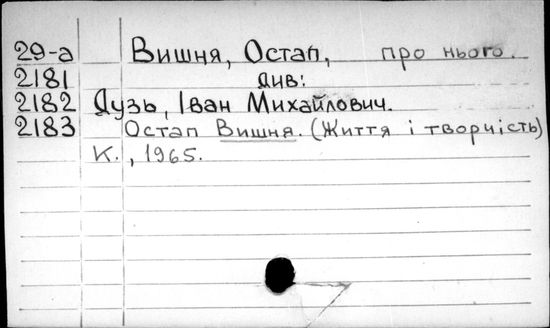 29-а Вишня, Остап, про нього.
2181 див:
2182 Дузь, Іван Михайлович.
2183 Остап Вишня. (Життя і творчість)
К., 1965.